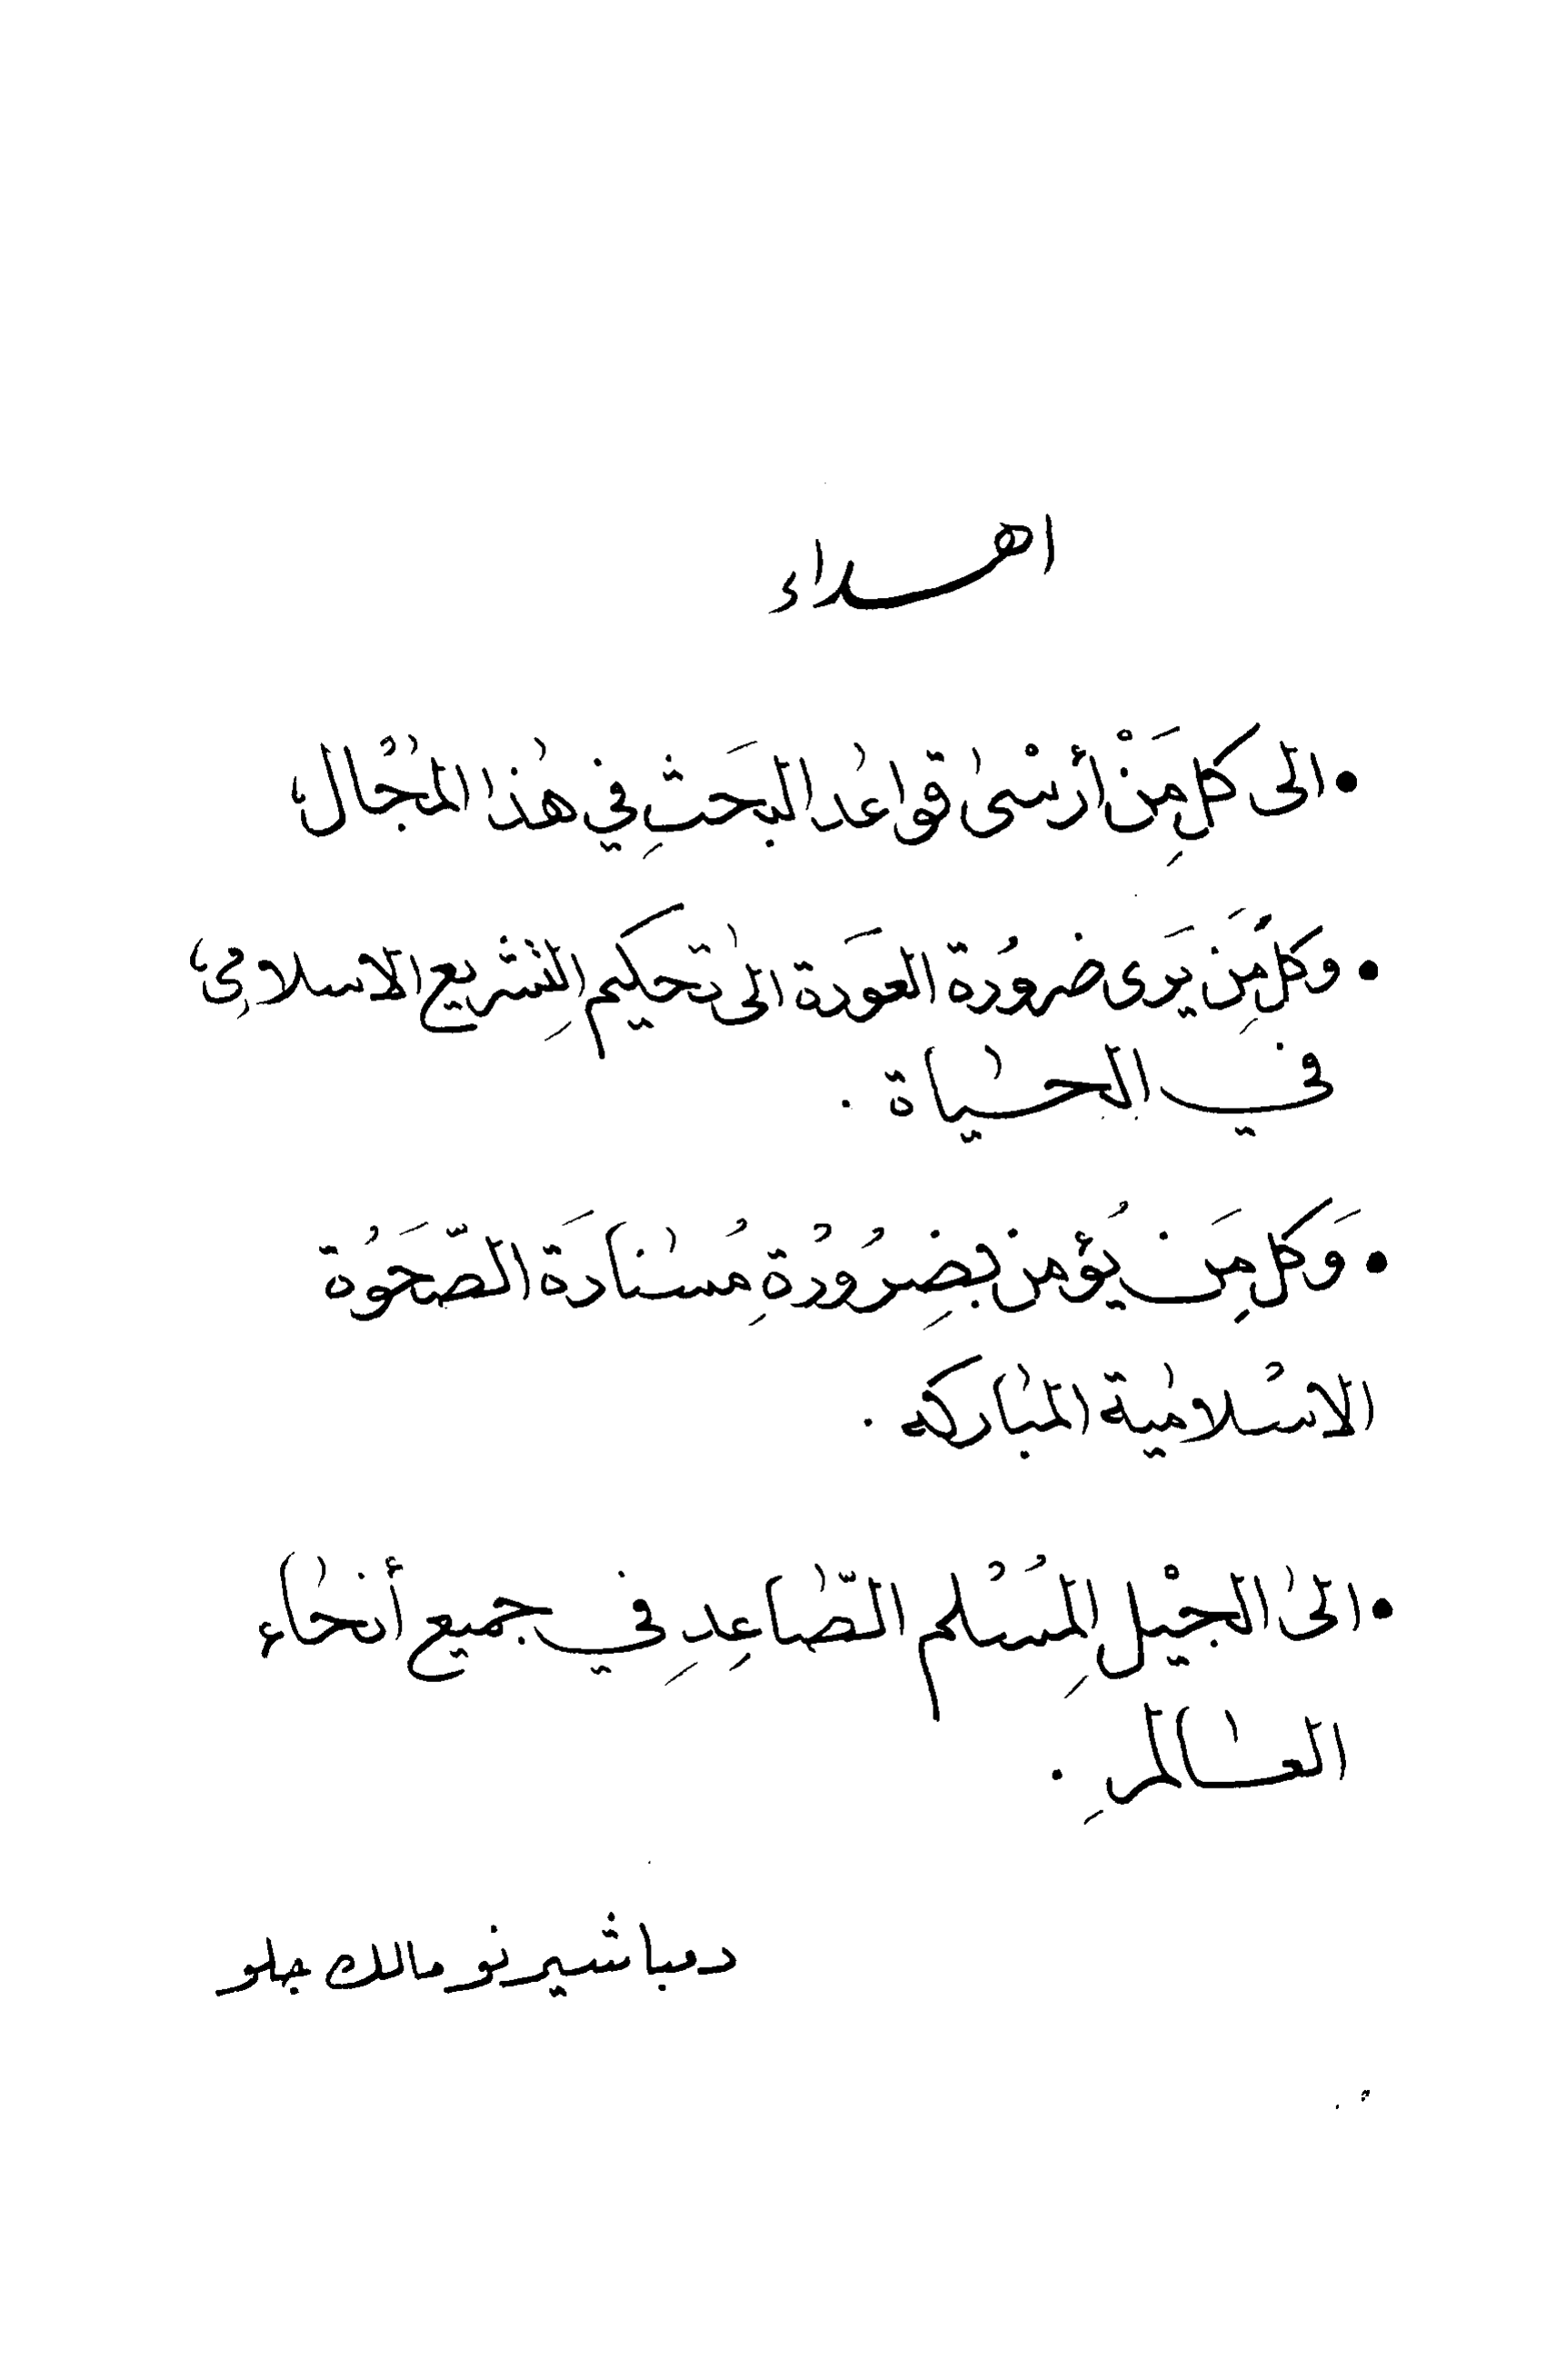 اهداء
• الى كلِ مَنْ أرْسىٰ قواعٰد البَحثِ في هٰذا المجٰال،
• وكلِ مَن يَرى ضرورُة العَودة الىٰ تحكيم التشريع الاسلامي،
في الحيٰاة .
• وَكلِ مَن يُؤمن بضِرُورُةِ مُسٰنادَة الصّحَوُة
الاسُلامٰية المبٰاركه .
• الىٰ الجيْلِ المُسُلم الصّٰاعِدِ في جميع أنحٰاء
العٰالمِ .
دمبا شيرنو مالك جلو